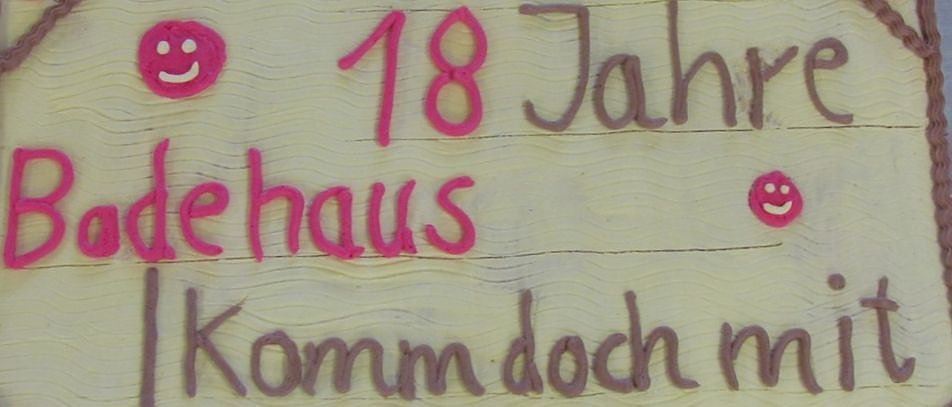 18 Jahre
Badehaus
Komm doch mit